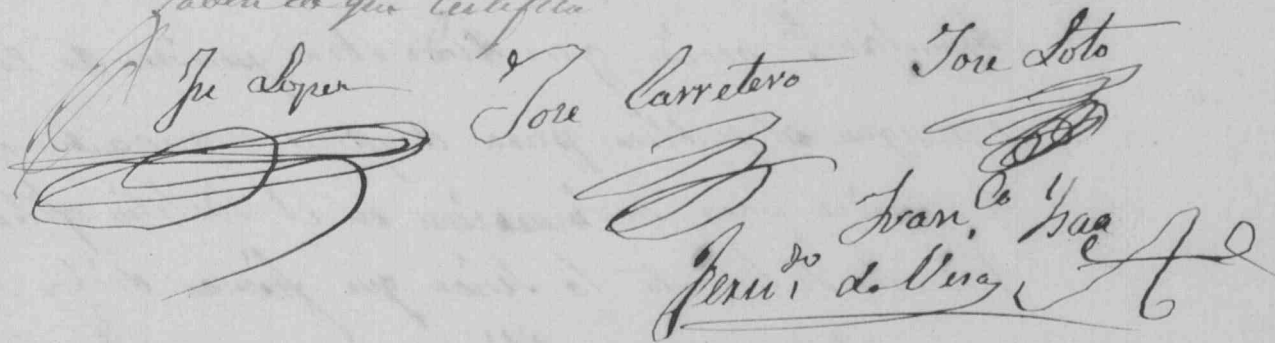 saben de que certifico
Jn Lopez
Jose Carretero
Jose Soto
Fran.co Ysac
Fern.do de Vera